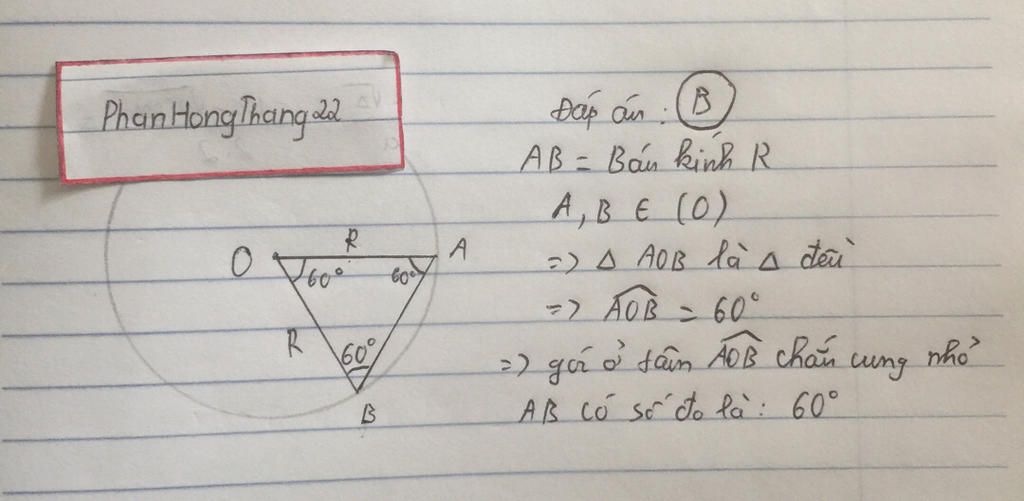 PhanHongThang22
Đáp án: B
AB = Bán kính R
A, B ∈ (O)
=> Δ AOB là Δ đều
=> \widehat{AOB} = 60°
=> góc ở tâm \widehat{AOB} chắn cung nhỏ
AB có số đo là: 60°
O R A
60° 60°
R
60°
B